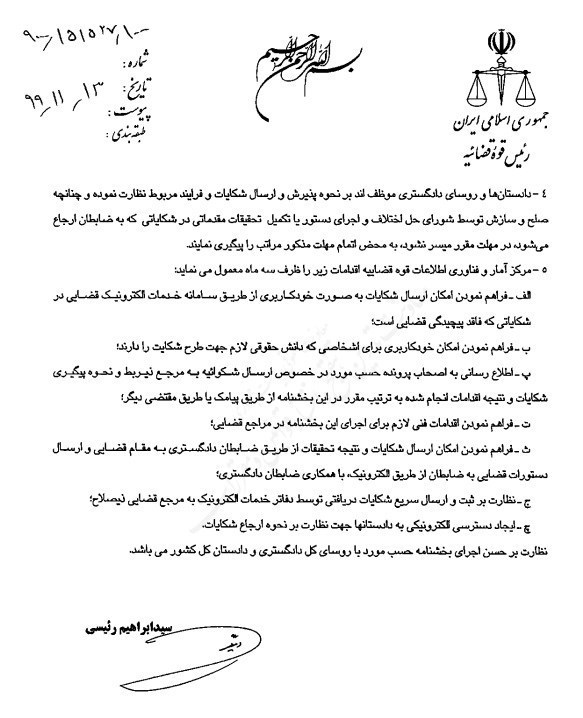 ۹۰۰۰/۱۵۱۵۲۷/۱۰۰
شماره :
تاریخ : ۹۹/۱۱/۱۳
پیوست :
طبقه‌بندی :
بسم الله الرحمن الرحیم
جمهوری اسلامی ایران
رئیس قوهٔ قضائیه
٤ - دادستان‌ها و روسای دادگستری موظف اند بر نحوه پذیرش و ارسال شکایات و فرایند مربوط نظارت نموده و چنانچه
صلح و سازش توسط شورای حل اختلاف و اجرای دستور یا تکمیل تحقیقات مقدماتی در شکایاتی که به ضابطان ارجاع
می‌شود، در مهلت مقرر میسر نشود، به محض اتمام مهلت مذکور مراتب را پیگیری نمایند.
٥ - مرکز آمار و فناوری اطلاعات قوه قضاییه اقدامات زیر را ظرف سه ماه معمول می نماید:
الف ـ فراهم نمودن امکان ارسال شکایات به صورت خودکاربری از طریق سامانه خدمات الکترونیک قضایی در
شکایاتی که فاقد پیچیدگی قضایی است؛
ب ـ فراهم نمودن امکان خودکاربری برای اشخاصی که دانش حقوقی لازم جهت طرح شکایت را دارند؛
پ ـ اطلاع رسانی به اصحاب پرونده حسب مورد در خصوص ارسال شکوائیه به مرجع ذیربط و نحوه پیگیری
شکایات و نتیجه اقدامات انجام شده به ترتیب مقرر در این بخشنامه از طریق پیامک یا طریق مقتضی دیگر؛
ت ـ فراهم نمودن اقدامات فنی لازم برای اجرای این بخشنامه در مراجع قضایی؛
ث ـ فراهم نمودن امکان ارسال شکایات و نتیجه تحقیقات از طریق ضابطان دادگستری به مقام قضایی و ارسال
دستورات قضایی به ضابطان از طریق الکترونیک، با همکاری ضابطان دادگستری؛
ج ـ نظارت بر ثبت و ارسال سریع شکایات دریافتی توسط دفاتر خدمات الکترونیک به مرجع قضایی ذیصلاح؛
چ ـ ایجاد دسترسی الکترونیکی به دادستانها جهت نظارت بر نحوه ارجاع شکایات.
نظارت بر حسن اجرای بخشنامه حسب مورد با روسای کل دادگستری و دادستان کل کشور می باشد.
سیدابراهیم رئیسی